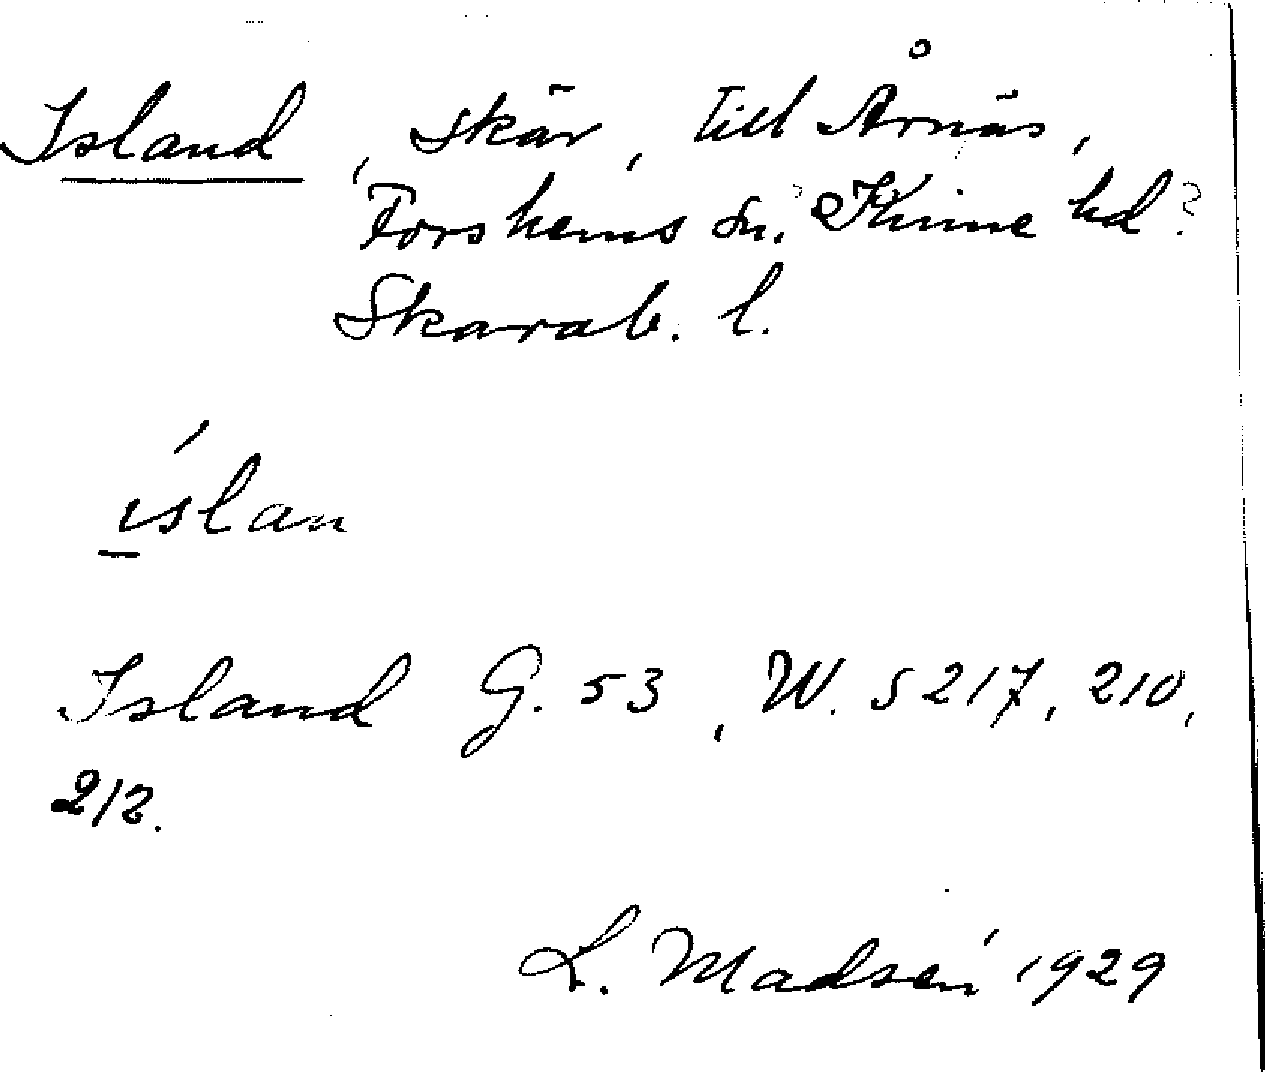 Island, skär, till Årnäs,
Forshems sn.? Kinne hd?
Skarab. l.
íslan
Island G. 53, W. S 217, 210,
212.
L. Madsén 1929